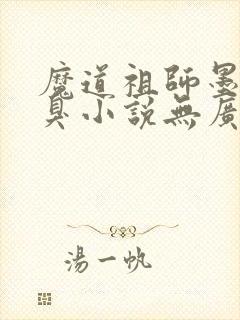 魔道祖師墨
臭小說無廣
湯一帆